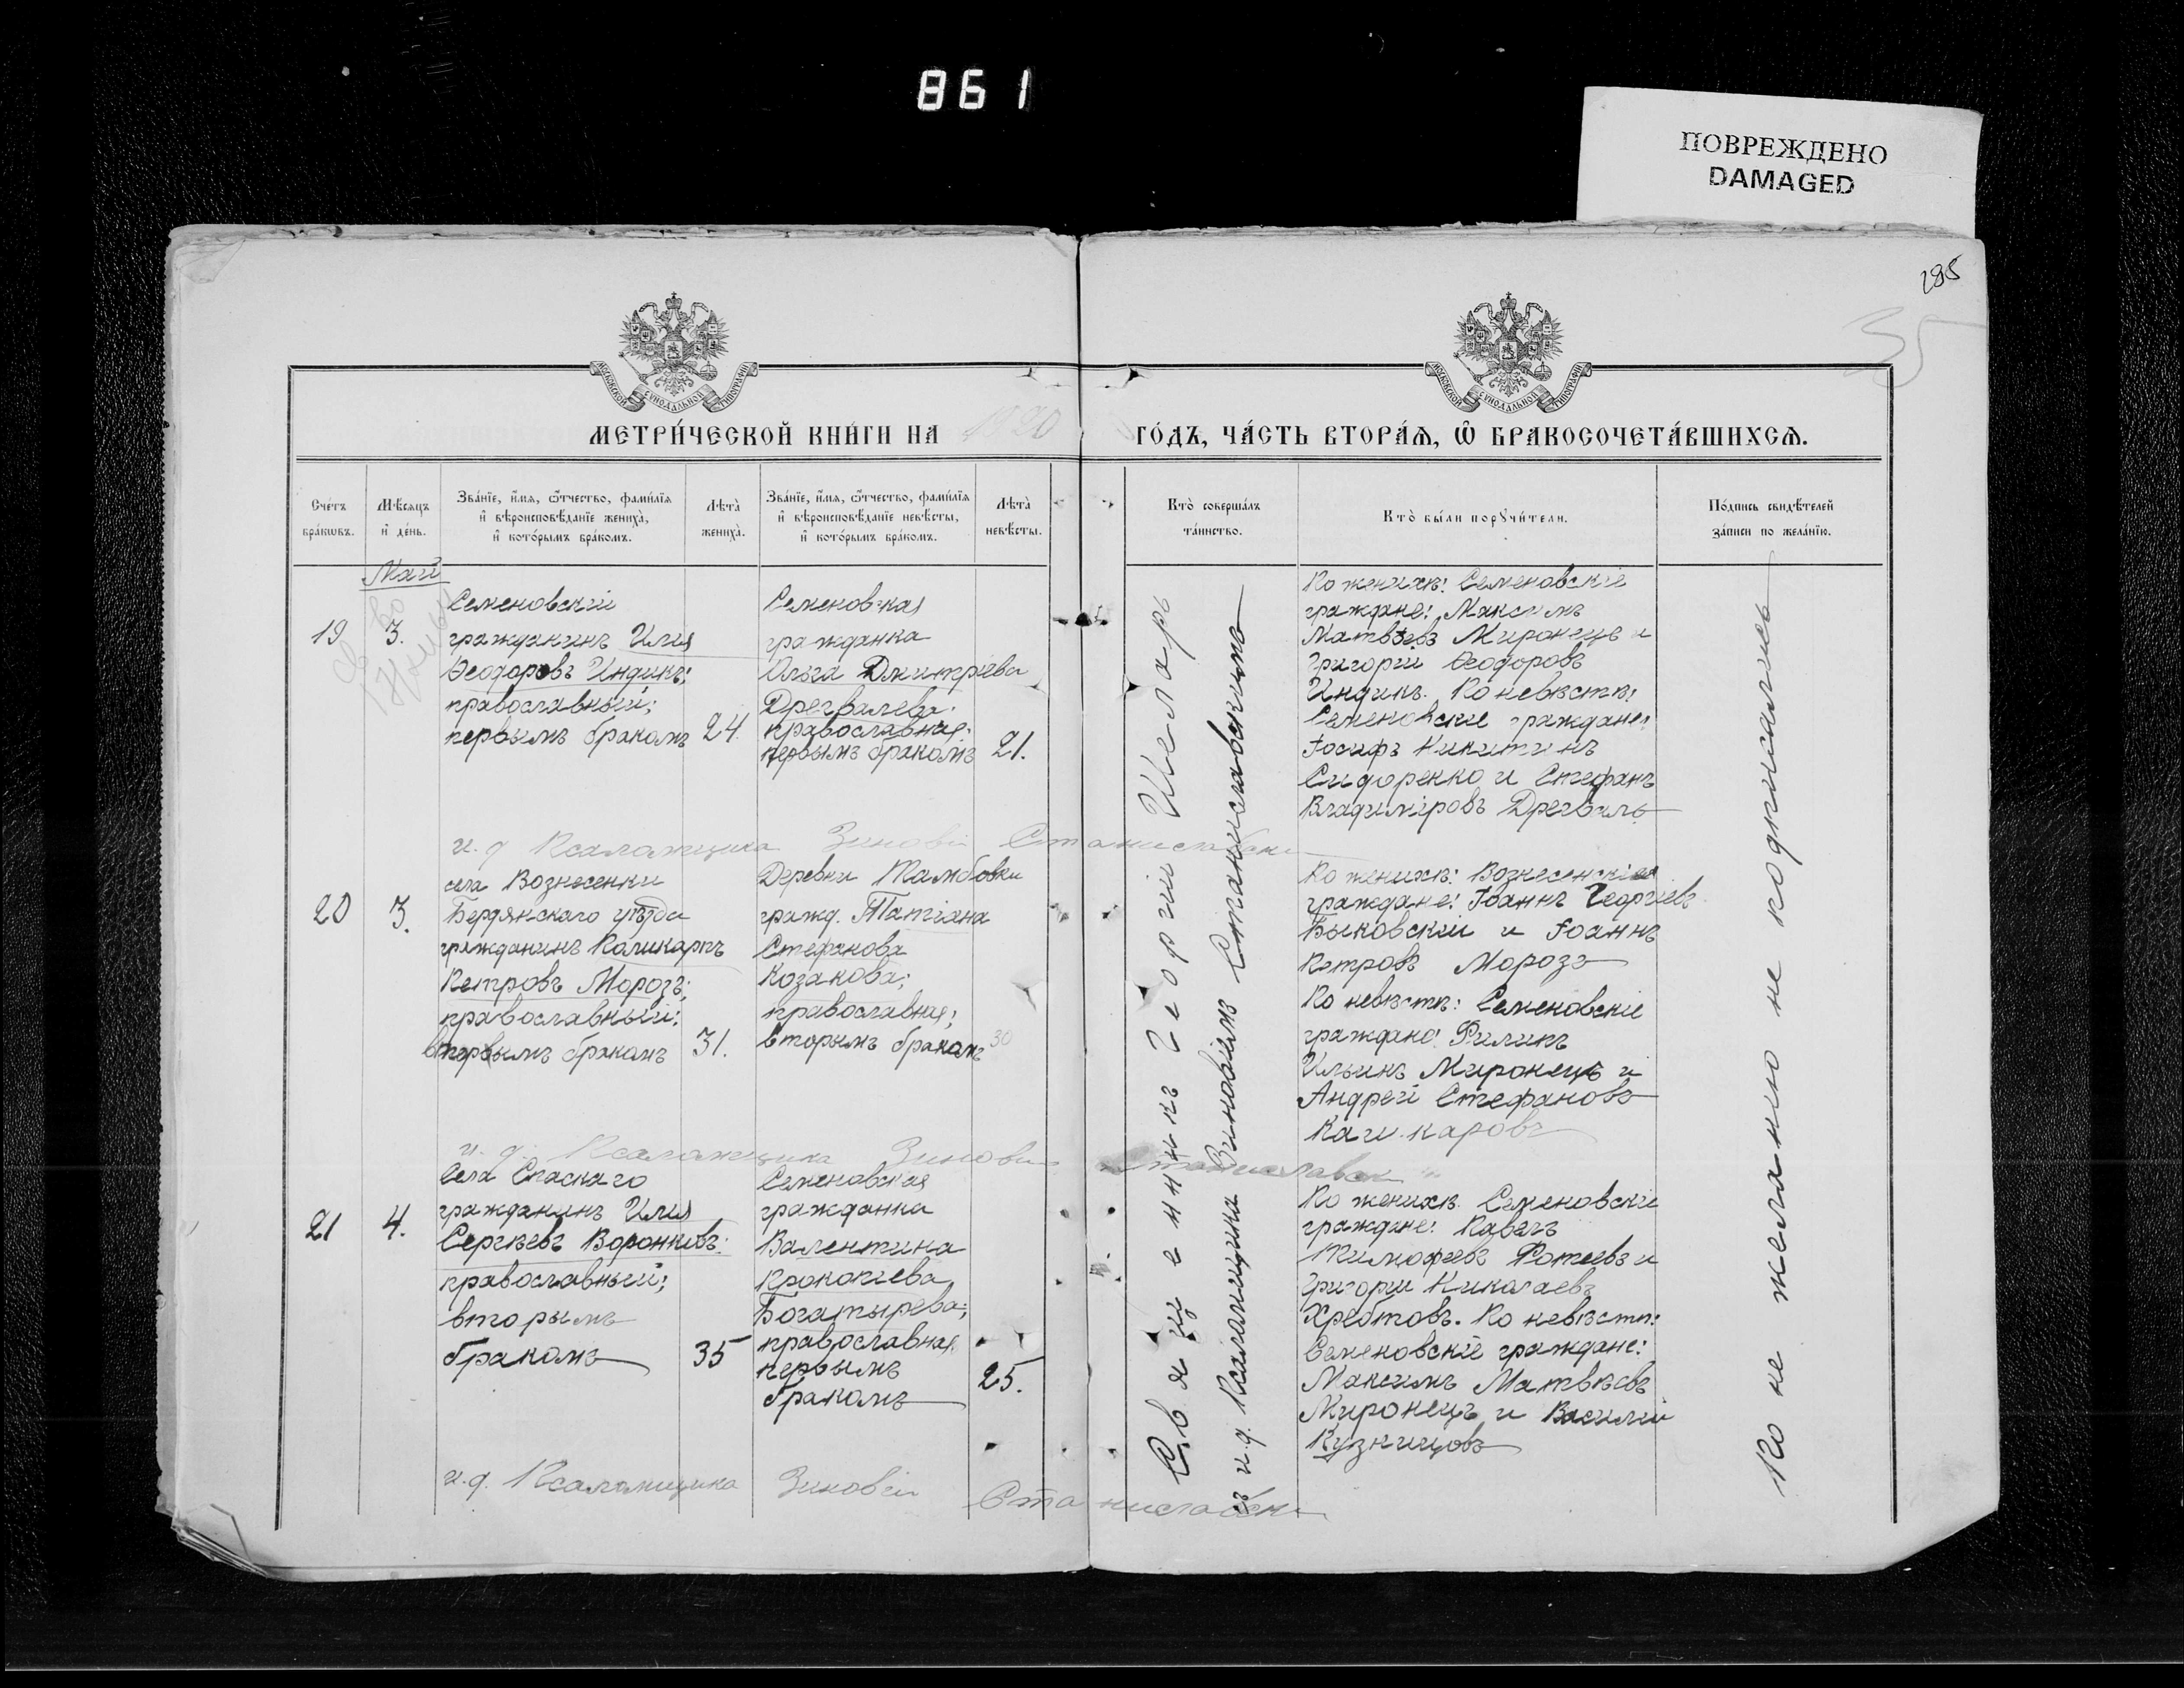 861
ПОВРЕЖДЕНО
DAMAGED
285
35
МОСКОВСКОЙ СѴНОДАЛЬНОЙ ТИПОГРАФІИ
МОСКОВСКОЙ СѴНОДАЛЬНОЙ ТИПОГРАФІИ
МЕТРИ́ЧЕСКОЙ КНИ́ГИ НА 1920 ГО́ДЪ, ЧА́СТЬ ВТОРА́Ѧ, Ѽ БРАКОСОЧЕТА́ВШИХСѦ.
Сче́тъ
бра́кѡвъ.
Мѣ́сѧцъ
и҆ де́нь.
Зва́нїе, и҆́мѧ, ѻ҆́тчество, фами́лїѧ
и҆ вѣроисповѣ́данїе жениха̀,
и҆ кото́рымъ бра́комъ.
Лѣта̀
жениха̀.
Зва́нїе, и҆́мѧ, ѻ҆́тчество, фами́лїѧ
и҆ вѣроисповѣ́данїе невѣ́сты,
и҆ кото́рымъ бра́комъ.
Лѣта̀
невѣ́сты.
Кто̀ соверша́лъ
та́инство.
Кто̀ бы́ли порꙋчи́тели.
По́дпись свидѣ́телей
за́писи по жела́нїю.
Май
19
3.
Семеновскій
гражданинъ Илія
Ѳеодоровъ Индикъ;
православный;
первымъ бракомъ
24.
Семеновская
гражданка
Ольга Дмитріева
Дрегвалева;
православная;
первымъ бракомъ
21.
Ко женихѣ: Семеновскіе
граждане: Максимъ
Матвѣевъ Миронецъ и
Григорій Ѳеодоровъ
Индикъ. По невѣстѣ:
Семеновскіе граждане:
Іосифъ Никитинъ
Сидоренко и Стефанъ
Владиміровъ Дрегваль
и. д. Псаломщика Зиновій Станиславскій
20
3.
села Вознесенки
Бердянскаго уѣзда
гражданинъ Поликарпъ
Петровъ Морозъ;
православный;
первымъ бракомъ
31.
Деревни Тамбовки
гражд. Татіана
Стефанова
Козакова;
православная;
вторымъ бракомъ
30
По женихѣ: Вознесенскіе
граждане: Іоаннъ Георгіевъ
Быковскій и Іоаннъ
Петровъ Морозъ
По невѣстѣ: Семеновскіе
граждане: Филипъ
Ильинъ Миронецъ и
Андрей Стефановъ
и. д. Псаломщика Зиновій Станиславскій
21
4.
Села Спаскаго
гражданинъ Илія
Сергѣевъ Воронковъ;
православный;
вторымъ
бракомъ
35
Семеновская
гражданка
Валентина
Прокопіева
Богатырева;
православная;
первымъ
бракомъ
25.
По женихѣ Семеновскіе
граждане: Павелъ
Тимофеевъ Фотеевъ и
Григорій Николаевъ
Хребтовъ. По невѣстѣ:
Семеновскіе граждане:
Максимъ Матвѣевъ
Миронецъ и Василій
Кузнецовъ
и. д. Псаломщика Зиновій Станиславскій
Священникъ Георгій Шеларь
съ и. д. Псаломщика Зиновіемъ Станиславскимъ
По не желанію не подписались